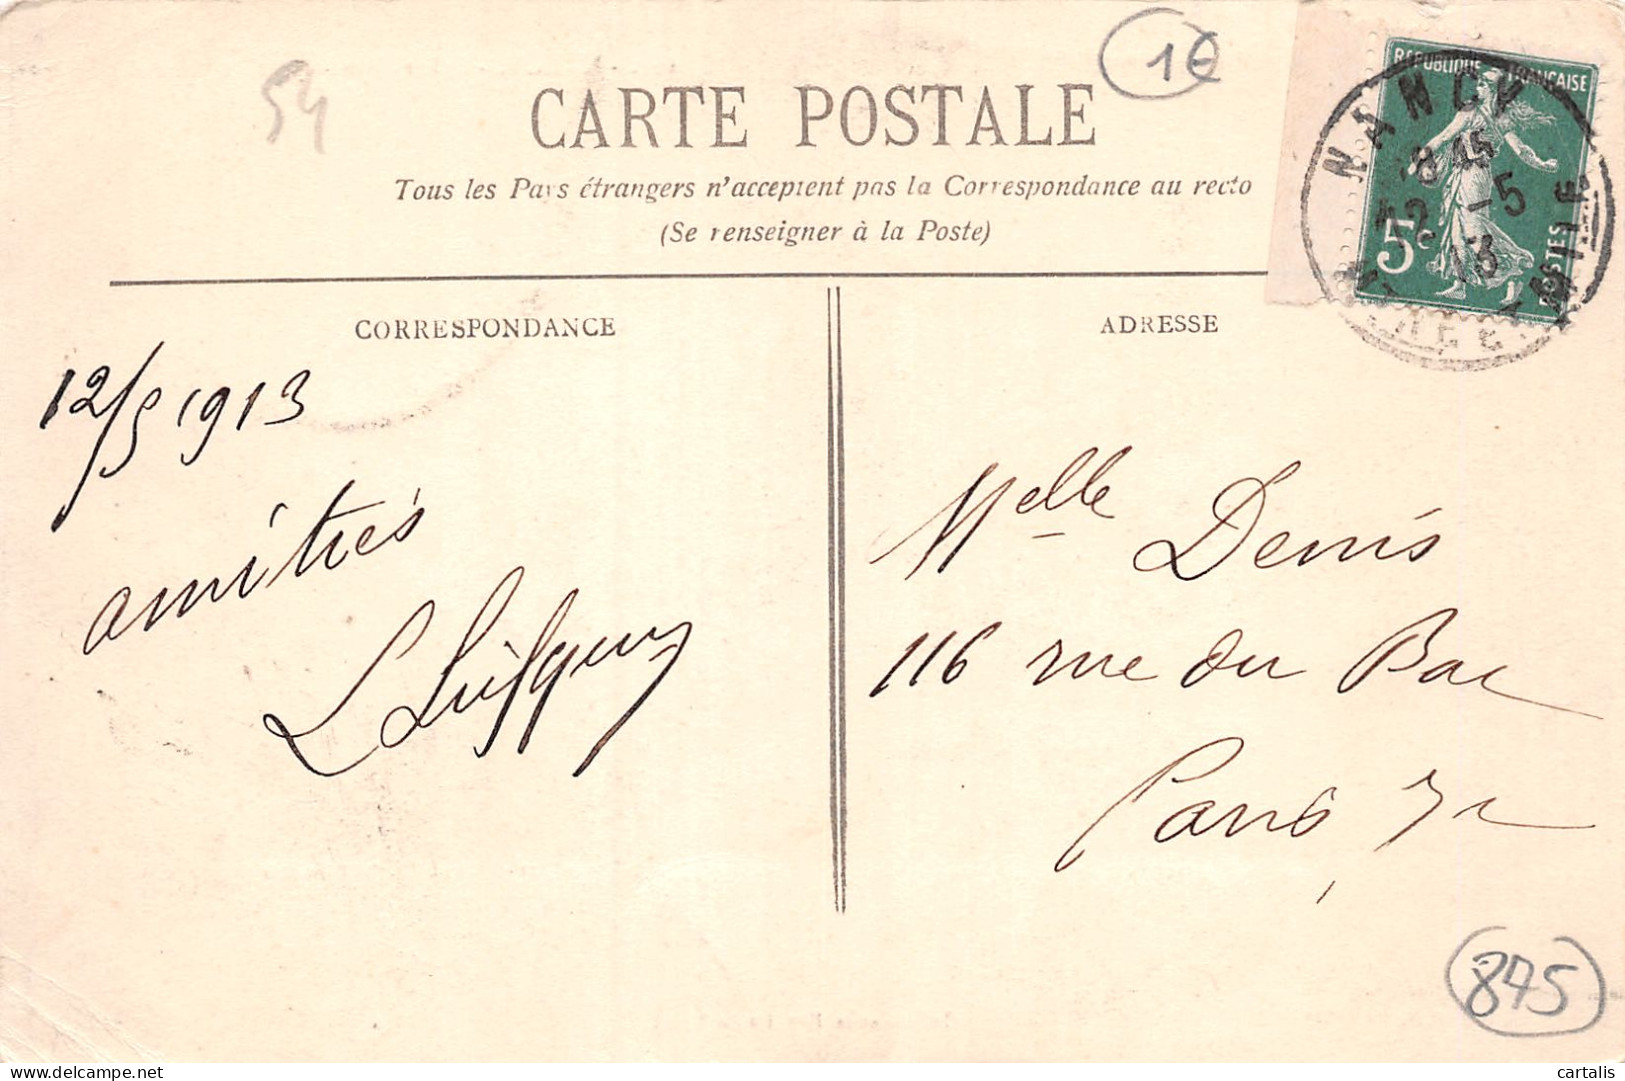 54
1€
CARTE POSTALE
Tous les Pays étrangers n'acceptent pas la Correspondance au recto
(Se renseigner à la Poste)
RÉPUBLIQUE FRANÇAISE
5c
POSTES
NANCY
8 45
12 -5
13
CORRESPONDANCE
ADRESSE
12/5 1913
amitiés
Melle Denis
116 rue du Bac
Paris 7e
875
delcampe.net
cartalis